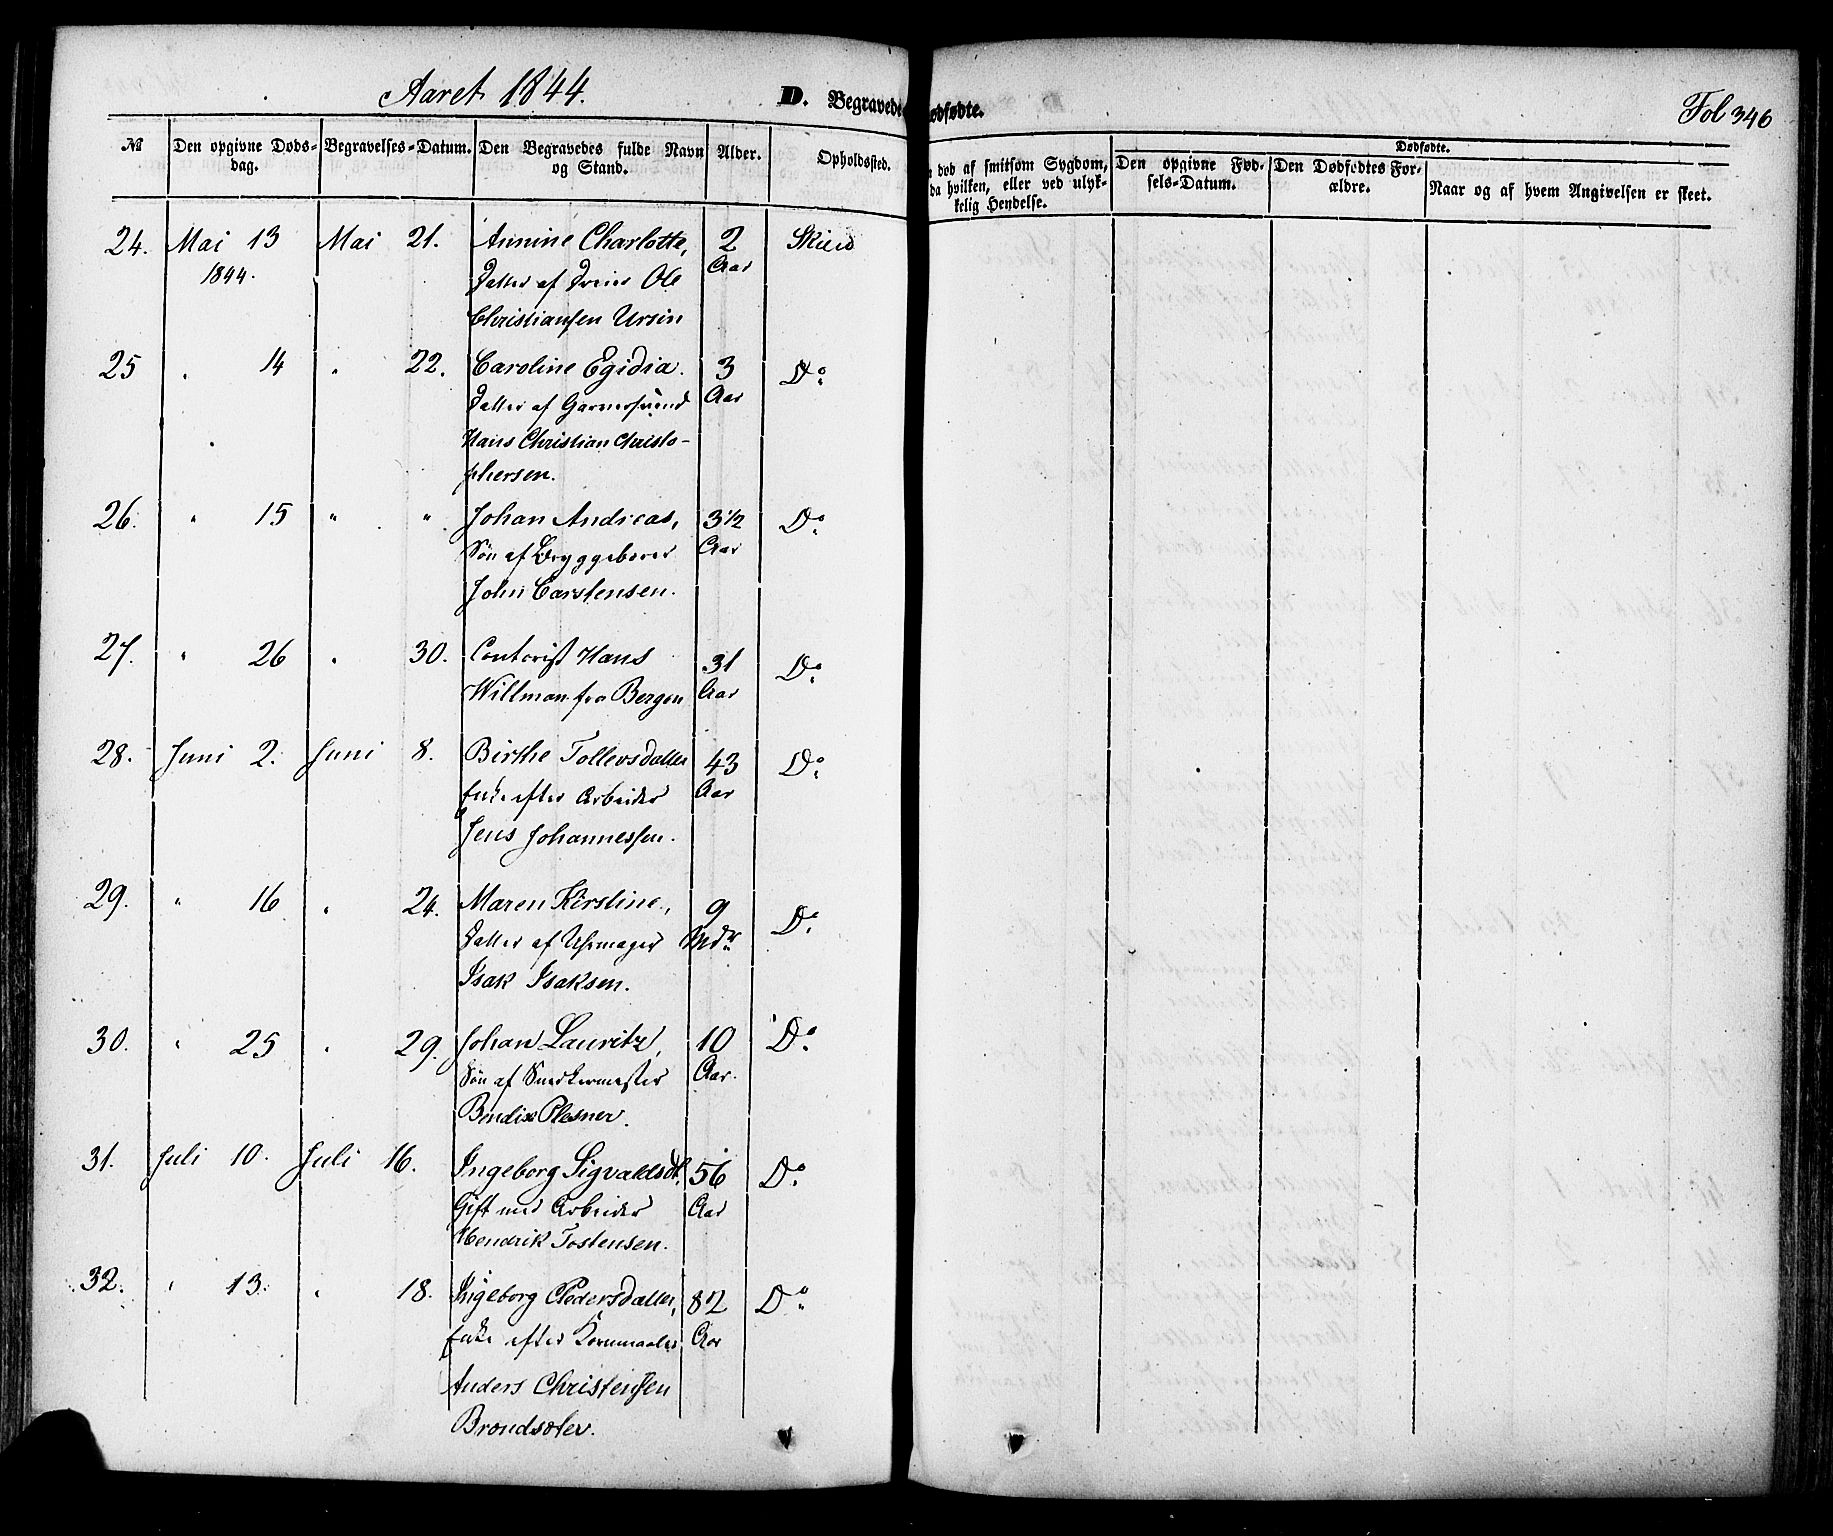 Aaret 1844.
D. Begravede
ødfødte.
Fol 346
№
Den opgivne Døds-
dag.
Begravelses-Datum.
Den Begravedes fulde Navn
og Stand.
Alder.
Opholdssted.
død af smitsom Sygdom,
da hvilken, eller ved ulyk-
kelig Hendelse.
Dødfødte.
Den opgivne Fød-
sels-Datum.
Den Dødfødtes For-
ældre.
Naar og af hvem Angivelsen er skeet.
24. Mai 13 Mai 21. Annine Charlotte, 2 Skien
1844. Datter af Dreier Ole Aar
Christiansen Ursin
25 " 14 " 22. Caroline Egidia. 3 Do
Datter af Garversvend Aar
Hans Christian Christo-
phersen.
26. " 15 " " Johan Andreas, 3 1/2 Do
Søn af Bryggebærer Aar
John Carstensen.
27. " 26 " 30. Contorist Hans 31 Do
Willman fra Bergen Aar
28. Juni 2. Juni 8. Birthe Tollevsdatter 43 Do
Enke efter Arbeider Aar
Jens Johannessen.
29. " 16 " 24. Maren Kirstine, 9 Do
Datter af Uhrmager Mdr
Isak Isaksen.
30. " 25 " 29. Johan Lauritz, 10 Do
Søn af Snedkermester Aar.
Bendix Plesner.
31. Juli 10. Juli 16. Ingeborg Sigvaldsdt. 56 Do
Gift med Arbeider Aar
Hendrik Tostensen.
32. " 13. " 18. Ingeborg Pedersdatter, 82 Do
Enke efter Kornmaaler Aar
Anders Christenssen
Brondsolev.